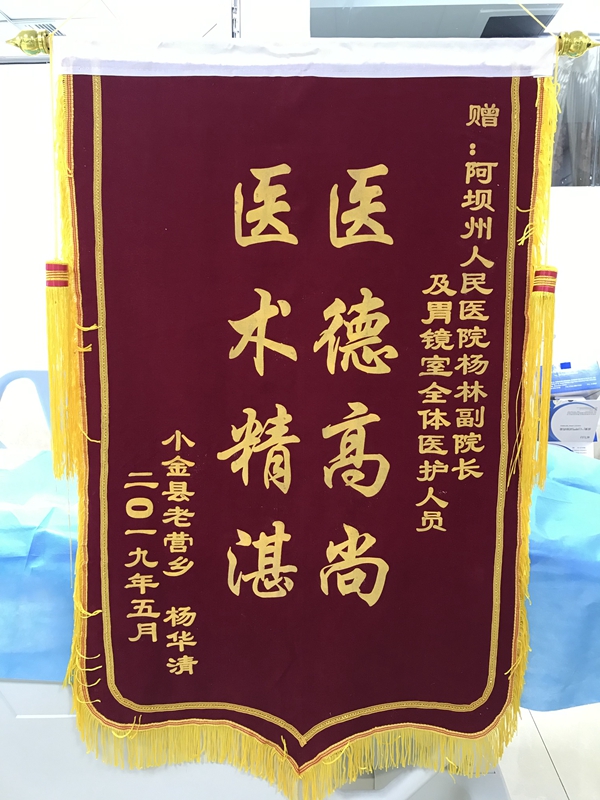 赠：阿坝州人民医院杨林副院长
及胃镜室全体医护人员
医德高尚
医术精湛
小金县老营乡 杨华清
二〇一九年五月